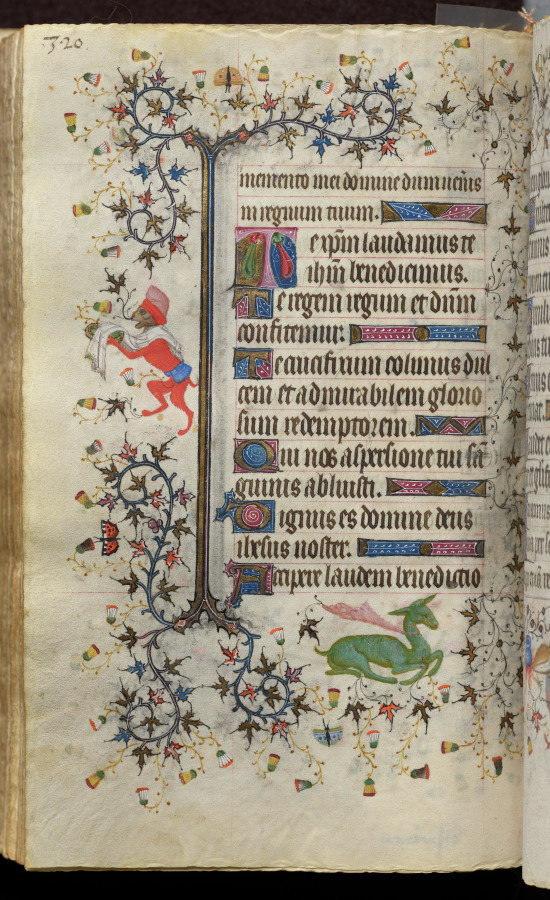 320.
memento mei domine dum ueñis
in regnum tuum.
Te xp̄m laudamus te
ihm̄ benedicimus.
Te regem regum et dūm
confitemur.
Te crucifixum colimus dul
cem et admirabilem glorio
sum redemptorem.
Qui nos aspersione tui sā
guinis abluisti.
Dignus es domine deus
ihesus noster.
Accipere laudem benedictio